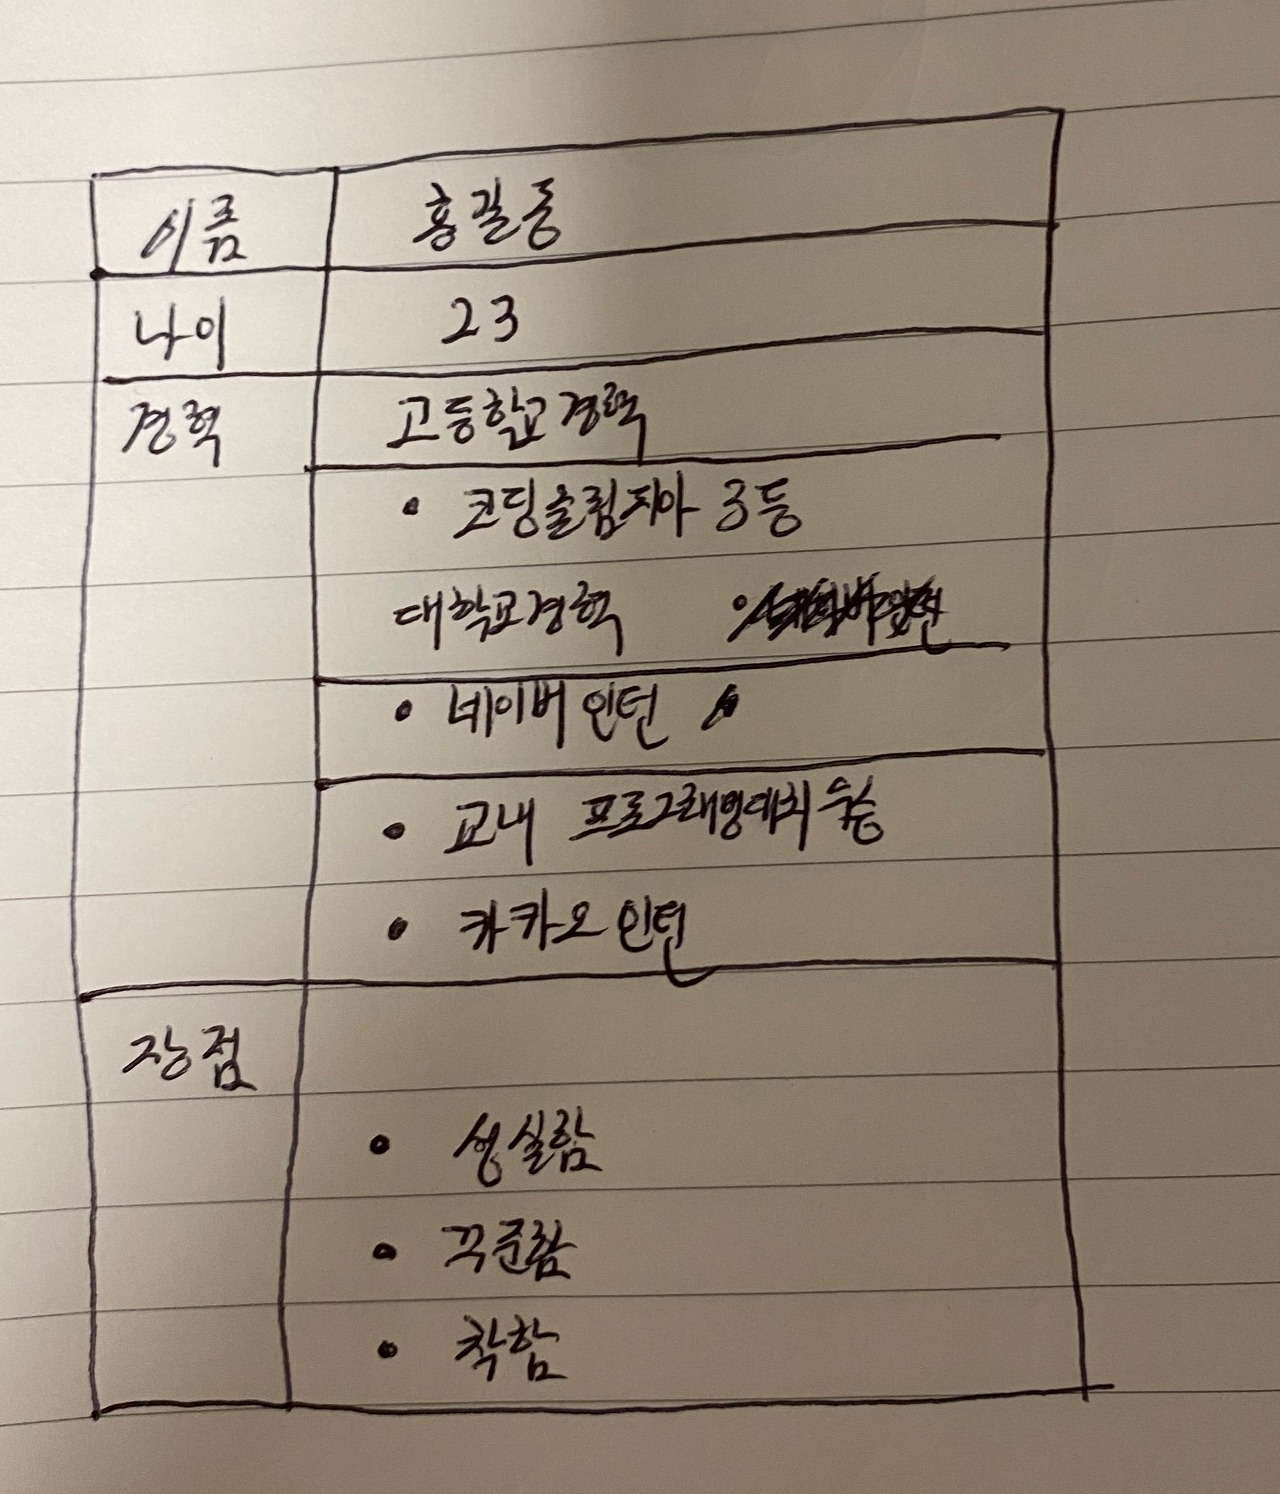 이름 홍길동
나이 23
경력 고등학교경력
• 코딩올림피아 3등
대학교경력
• 네이버 인턴
• 교내 프로그래밍대회 우승
• 카카오 인턴
장점
• 성실함
• 꾸준함
• 착함